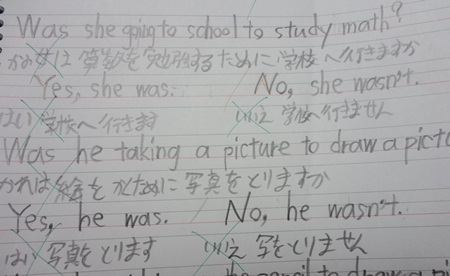 Was she going to school to study math?
かの女は 算数を勉強するために学校へ行きますか
Yes, she was. No, she wasn't.
はい 学校へ行きます いいえ 学校へ行きません
Was he taking a picture to draw a pict
かれは絵をかくために写真をとりますか
Yes, he was. No, he wasn't.
はい 写真をとります いいえ 写をとりません
to draw a